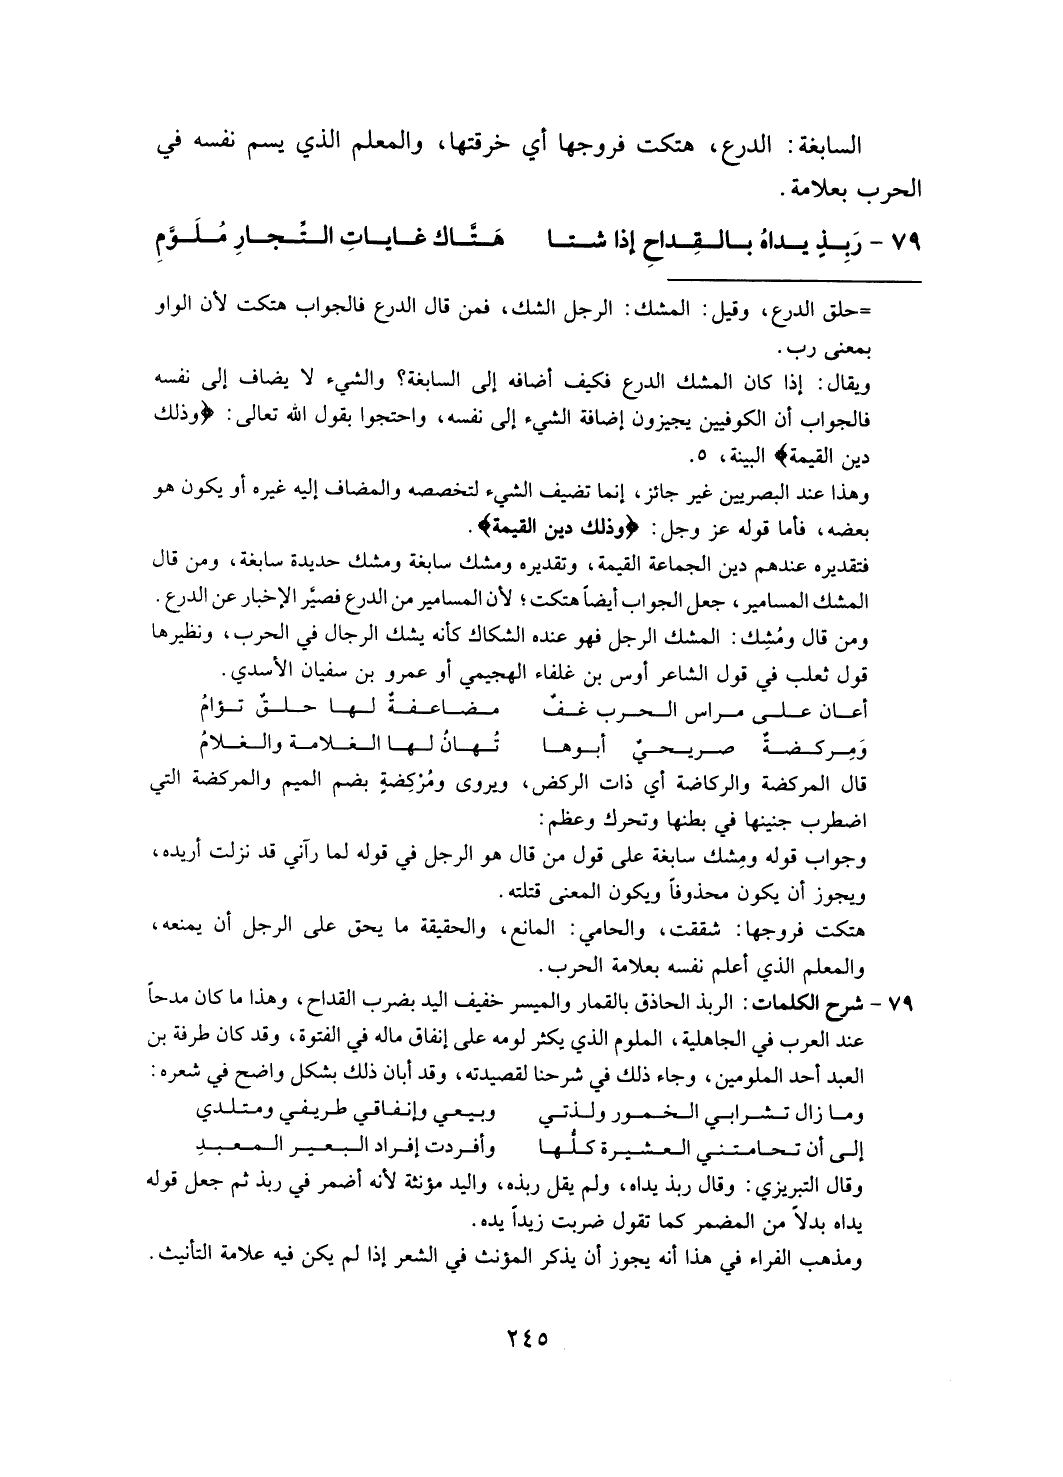 السابغة: الدرع، هتكت فروجها أي خرقتها، والمعلم الذي يسم نفسه في
الحرب بعلامة.
٧٩ - رَبِـذٍ يـداهُ بـالـقِـداحِ إذا شـتـا هَـتَّـاك غـايـاتِ الـتِّـجـارِ مُـلَـوَّمِ
=حلق الدرع، وقيل: المشك: الرجل الشك، فمن قال الدرع فالجواب هتكت لأن الواو
بمعنى رب.
ويقال: إذا كان المشك الدرع فكيف أضافه إلى السابغة؟ والشيء لا يضاف إلى نفسه
فالجواب أن الكوفيين يجيزون إضافة الشيء إلى نفسه، واحتجوا بقول الله تعالى: ﴿وذلك
دين القيمة﴾ البينة، ٥.
وهذا عند البصريين غير جائز، إنما تضيف الشيء لتخصصه والمضاف إليه غيره أو يكون هو
بعضه، فأما قوله عز وجل: ﴿وذلك دين القيمة﴾.
فتقديره عندهم دين الجماعة القيمة، وتقديره ومشك سابغة ومشك حديدة سابغة، ومن قال
المشك المسامير، جعل الجواب أيضاً هتكت؛ لأن المسامير من الدرع فصيَّر الإخبار عن الدرع.
ومن قال ومُشِك: المشك الرجل فهو عنده الشكاك كأنه يشك الرجال في الحرب، ونظيرها
قول ثعلب في قول الشاعر أوس بن غلفاء الهجيمي أو عمرو بن سفيان الأسدي.
أعـان عـلـى مـراس الـحـرب غـفٌ مـضـاعـفـةٌ لـهـا حـلـقٌ تـؤامُ
وَمِـركـضـةٌ صـريـحـيٌ أبـوهـا تُـهـانُ لـهـا الـغـلامـة والـغـلامُ
قال المركضة والركاضة أي ذات الركض، ويروى ومُرْكِضةٍ بضم الميم والمركضة التي
اضطرب جنينها في بطنها وتحرك وعظم:
وجواب قوله ومِشك سابغة على قول من قال هو الرجل في قوله لما رآني قد نزلت أريده،
ويجوز أن يكون محذوفاً ويكون المعنى قتلته.
هتكت فروجها: شققت، والحامي: المانع، والحقيقة ما يحق على الرجل أن يمنعه،
والمعلم الذي أعلم نفسه بعلامة الحرب.
٧٩ - شرح الكلمات: الربذ الحاذق بالقمار والميسر خفيف اليد بضرب القداح، وهذا ما كان مدحاً
عند العرب في الجاهلية، الملوم الذي يكثر لومه على إنفاق ماله في الفتوة، وقد كان طرفة بن
العبد أحد الملومين، وجاء ذلك في شرحنا لقصيدته، وقد أبان ذلك بشكل واضح في شعره:
ومـا زال تـشـرابـي الـخـمـور ولـذتـي وبـيـعـي وإنـفـاقـي طـريـفـي ومـتـلـدي
إلـى أن تـحـامـتـنـي الـعـشـيـرة كـلُّـهـا وأفـردت إفـراد الـبـعـيـر الـمـعـبـدِ
وقال التبريزي: وقال ربذ يداه، ولم يقل ربذه، واليد مؤنثة لأنه أضمر في ربذ ثم جعل قوله
يداه بدلاً من المضمر كما تقول ضربت زيداً يده.
ومذهب الفراء في هذا أنه يجوز أن يذكر المؤنث في الشعر إذا لم يكن فيه علامة التأنيث.
٢٤٥